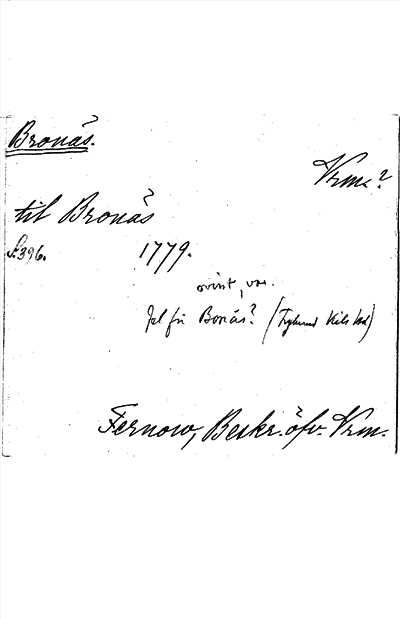 Bronäs.
Vrm.?
til Bronäs
S. 396. 1779.
ovisst, var.
Fel för Bonäs? (Frykerud Kils hd)
Fernow, Beskr. öfv. Vrm.